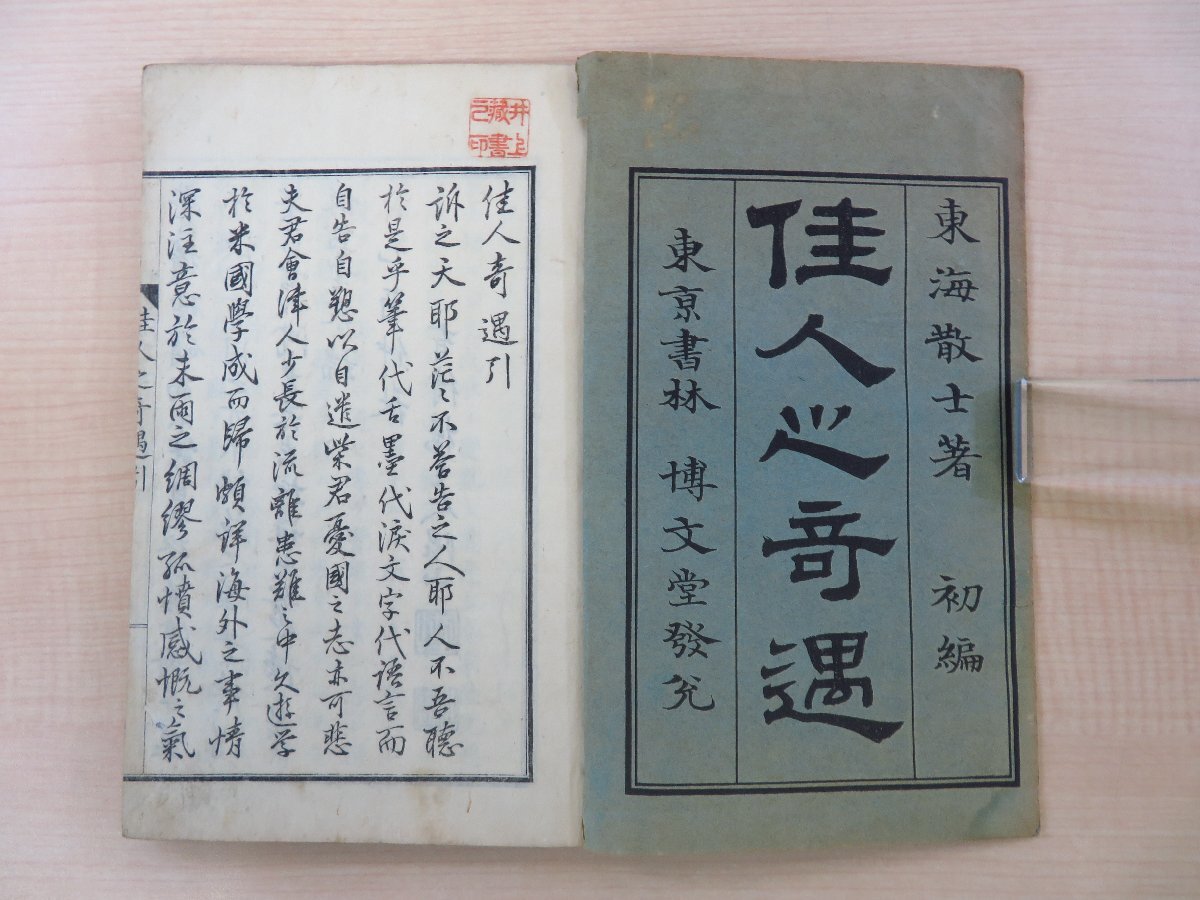 東海散士著 初編
佳人之奇遇
東京書林 博文堂發兌
井上
藏書
之印
佳人奇遇引
訴之天耶茫〻不答告之人耶人不吾聽
於是乎筆代舌墨代淚文字代語言而
自告自愬以自遣柴君憂國之志亦可悲
夫君會津人少長於流離患難〻中久遊学
於米國學成而歸頗詳海外之事情
深注意於未雨之綢繆孤憤感慨之氣
佳人之奇遇引